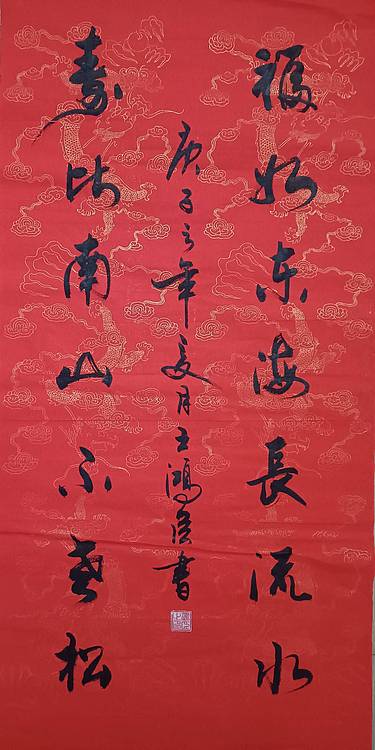 福如东海長流水
寿比南山不老松
庚子之年夏月王鴻書